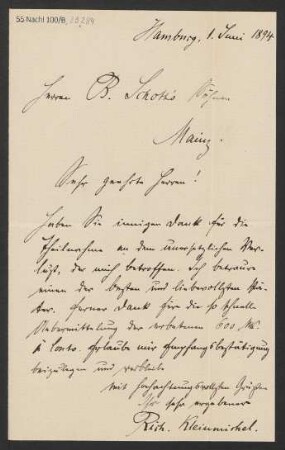 55 Nachl 100/B,
Hamburg, 1. Juni 1894
Herren B. Schott's Söhne
Mainz.
Sehr geehrte Herren!
Haben Sie innigen Dank für die
Theilnahme an dem unersetzlichen Ver-
lust, der mich betroffen. Ich betraure
einen der besten und liebevollsten Vä-
ter. Ferner Dank für die so schnelle
Uebermittelung der erbetenen 600 Mk.
à Conto. Erlaube mir Empfangsbestätigung
beizulegen und verbleibe
mit hochachtungsvollsten Grüßen
Ihr sehr ergebener
Rich. Kleinmichel.